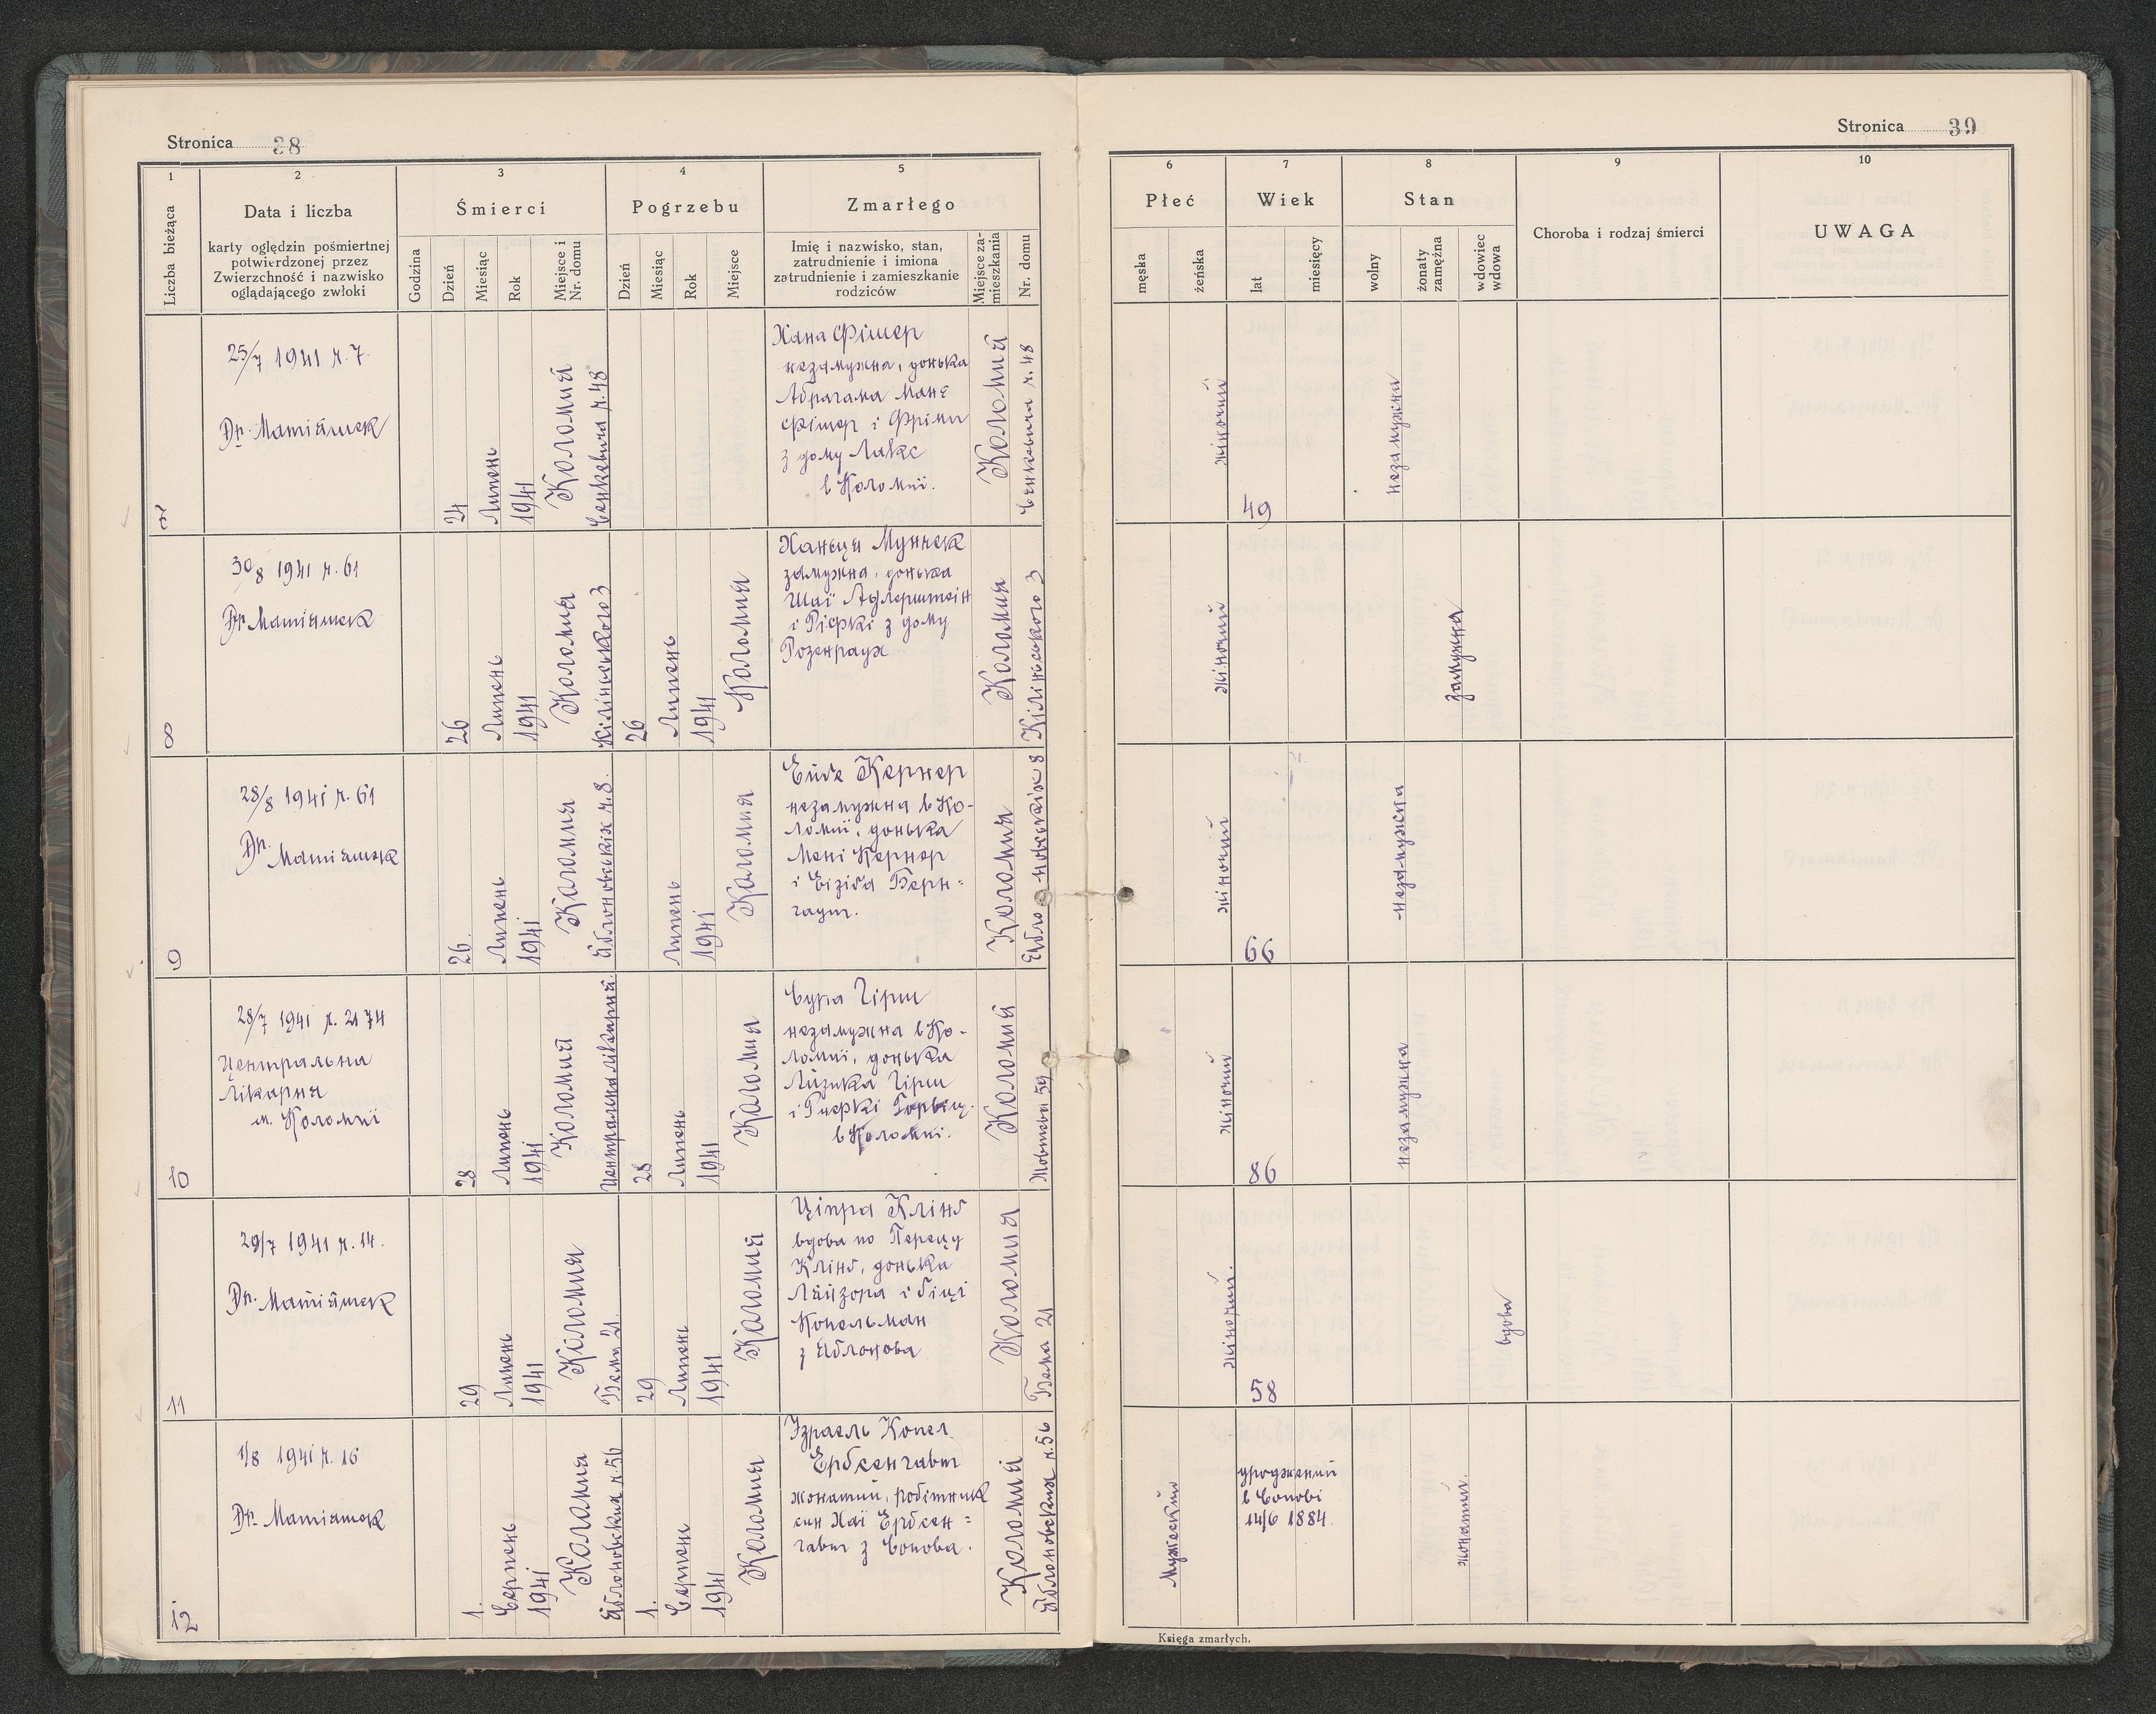 Stronica 38
1 2 3 4 5
Liczba bieżąca
Data i liczba
karty oględzin pośmiertnej
potwierdzonej przez
Zwierzchność i nazwisko
oglądającego zwłoki
Śmierci
Godzina
Dzień
Miesiąc
Rok
Miejsce i
Nr. domu
Pogrzebu
Dzień
Miesiąc
Rok
Miejsce
Zmarłego
Imię i nazwisko, stan,
zatrudnienie i imiona
zatrudnienie i zamieszkanie
rodziców
Miejsce za-
mieszkania
Nr. domu
7
25/7 1941 ч. 7.
Др. Матіяшек
24
Липень
1941
Коломия
Сенкевича ч. 48
Хана Фішер
незамужна, донька
Абрагама Мане
Фішер і Фріми
з дому Лакс
в Коломиї.
Коломия
Сенкевича ч. 48
8
30/8 1941 ч. 61
Др. Матіяшек
26
Липень
1941
Коломия
Кілінського 3
26
Липень
1941
Коломия
Ханьця Мунчек
замужна, донька
Шаї Адлерштейн
і Ріфкі з дому
Розенраух
Коломия
Кілінського 3
9
28/8 1941 ч. 61
Др. Матіяшек
26.
Липень
1941
Коломия
Яблоновскіх ч. 8.
Липень
1941
Коломия
Ейґе Кернер
незамужна в Ко-
ломиї, донька
Мені Кернер
і Візіґа Берн-
гаут.
Коломия
Яблоновскіх 8
10
28/7 1941 ч. 2174
Центральна
Лікарня
м. Коломиї
28
Липень
1941
Коломия
Центральна лікарня.
28
Липень
1941
Коломия
Сура Гірш
незамужна в Ко-
ломиї, донька
Лизика Гірш
і Риєркі Горвіц.
в Коломиї.
Коломия
Жовтнева 59
11
29/7 1941 ч. 14.
Др. Матіяшек
29
Липень
1941
Коломия
Бема 21.
29
Липень
1941
Коломия
Ціпра Клінґ
вдова по Перецу
Клінґ, донька
Лайзора і Ґіці
Копельман
з Яблонова
Коломия
Бема 21
12
1/8 1941 ч. 16
Др. Матіяшек
1.
Серпень
1941
Коломия
Яблоновских ч. 56
1.
Серпень
1941
Коломия
Ізраель Копел
Ербсенгавт
жонатий, робітник
син Хаї Ербсен-
гавт з Сопова.
Коломия
Яблоновских ч. 56
Stronica 39
6 7 8 9 10
Płeć
męska
żeńska
Wiek
lat
miesięcy
Stan
wolny
żonaty
zamężna
wdowiec
wdowa
Choroba i rodzaj śmierci
UWAGA
жіночий
49
незамужна
жіночий
замужна
жіночий
66
незамужна
жіночий
86
незамужна
жіночий.
58
вдова
Мужеский
уроджений
в Сопові
14/6 1884.
жонатий.
Księga zmarłych.